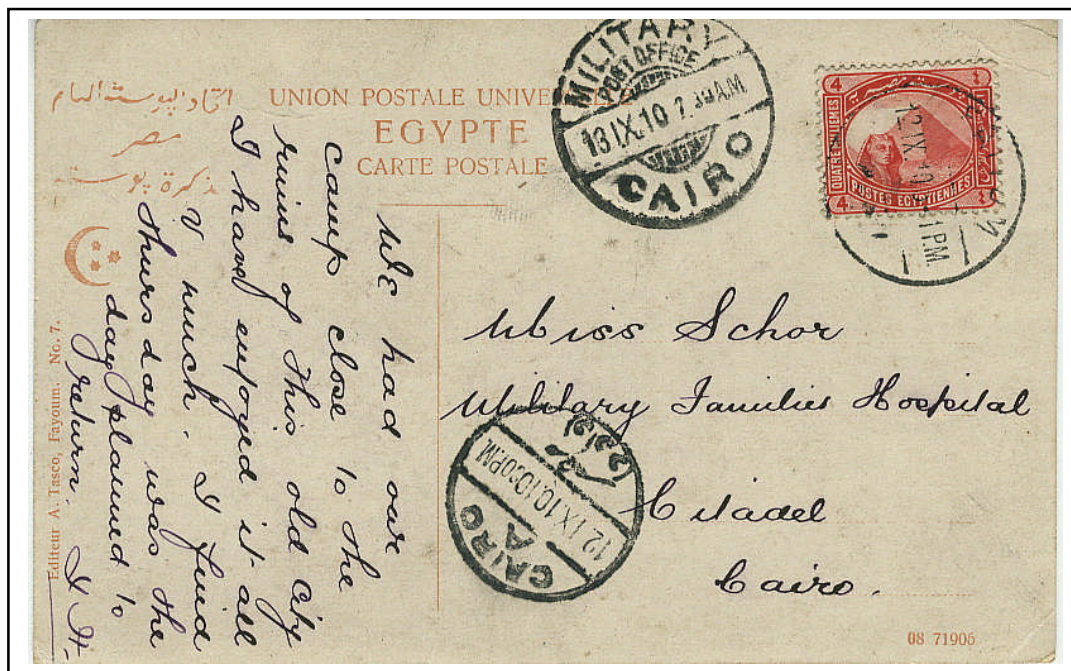 اتحاد البوستة العام
مصر
تذكرة بوستة
UNION POSTALE UNIVERSELLE
EGYPTE
CARTE POSTALE
MILITARY
POST OFFICE
13 IX.10 7.30AM
CAIRO
QUATRE MILLIEMES
4
4
POSTES EGYPTIENNES
12.IX.10
1 P.M.
We had our
camp close to the
ruins of this old city
I have enjoyed it all
V much. I find
Thursday was the
day planned to
return. I H-
Miss Schor
Military Families Hospital
Citadel
Cairo.
12.IX.10.10 30P.M.
CAIRO
A
Editeur A. Tasco, Fayoum. No. 7.
08 71906